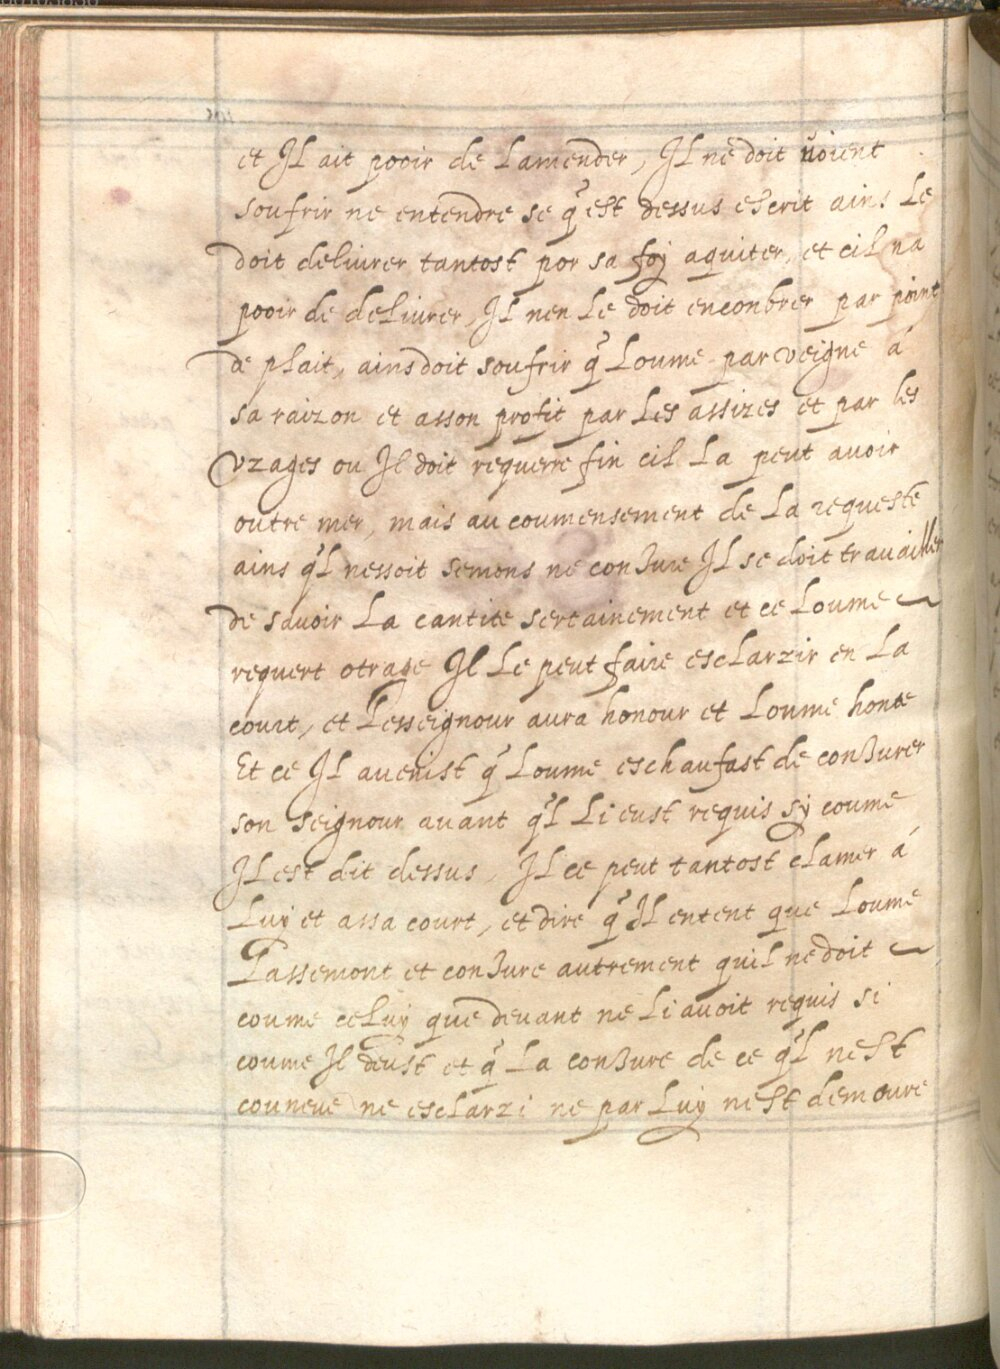 et Jl ait pooir de Lamender, Jl ne doit noient
soufrir ne entendre se q̃ est dessus escrit ains Le
doit deliurer tantost por sa foy aquiter, et cil na
pooir de deliurer, Jl nen Le doit enconbrer par point
de plait, ains doit soufrir q̃ Loume par veigne á
sa raizon et asson profit par Les assizes et par les
vzages ou Jl doit requerre fin cil La peut auoir
outre mer, mais au coumensement de La requeste
ains q̃l nessoit semons ne conJure Jl se doit trauailler
de sauoir La cantite sertainement et ce Loume
requert otrage Jl Le peut faire esclarzir en La
court, et Lesseignour aura honour et Loume honte
Et ce Jl auenist q̃ Loume eschaufast de conJurer
son seignour auant q̃l Li eust requis sy coume
Jl est dit dessus, Jl ce peut tantost clamer á
Luy et assa court, et dire q̃ Jl entent que Loume
Lassemont et conJure autrement quil ne doit
coume celuy que deuant ne Li auoit requis si
coume Jl deust et q̃ La conJure de ce q̃l nest
couneue ne esclarzi ne par Luy nest demoure